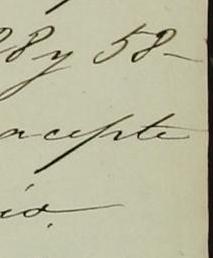 28 y 58-
acepte
io.